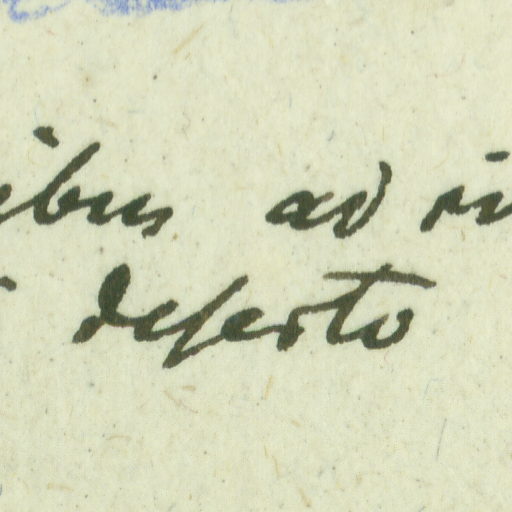 ibus ad ri
deserto